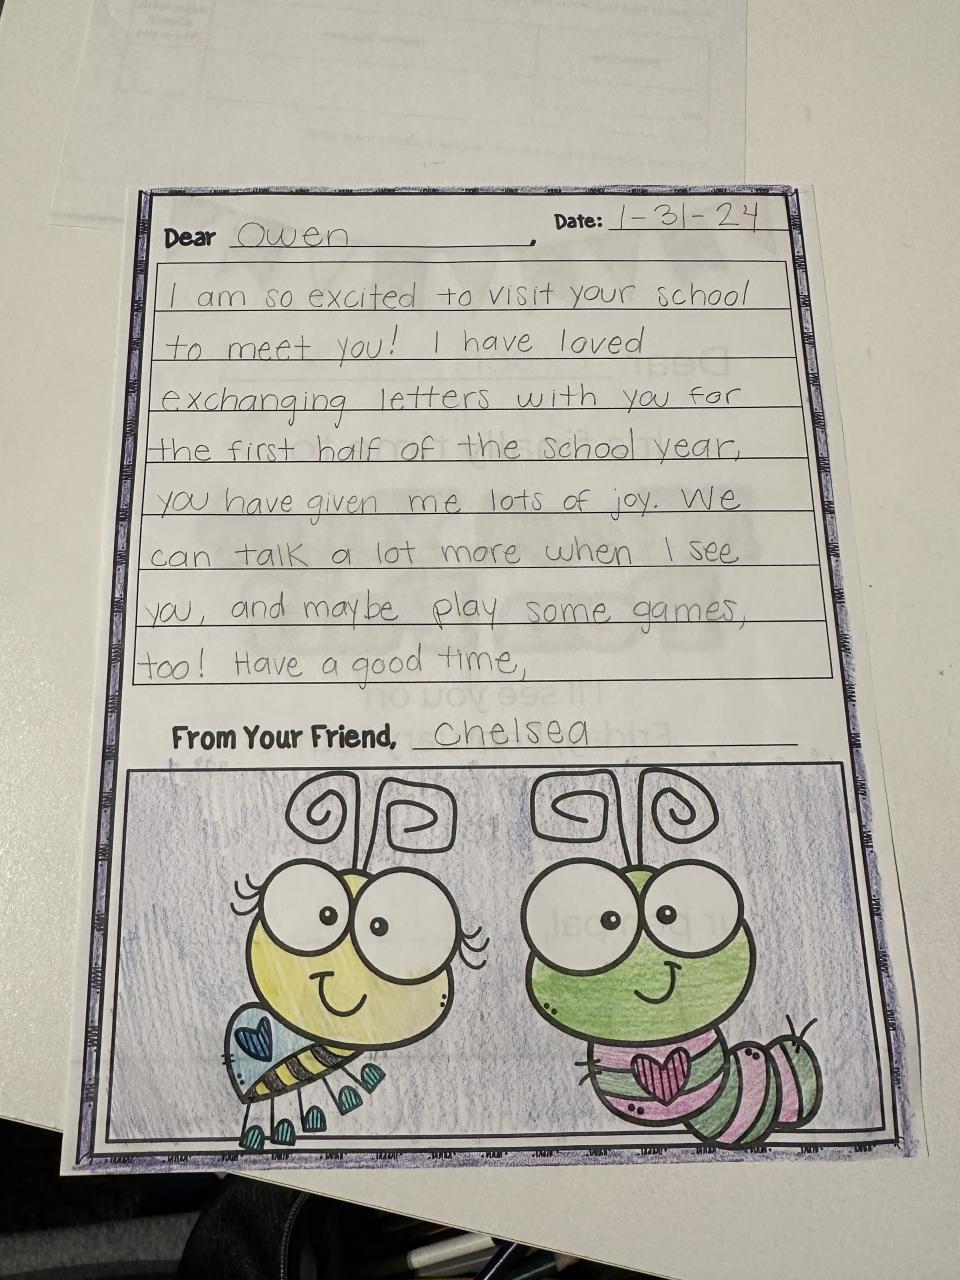 Dear Owen,
Date: 1-31-24
I am so excited to visit your school
to meet you! I have loved
exchanging letters with you for
the first half of the school year,
you have given me lots of joy. We
can talk a lot more when I see
you, and maybe play some games,
too! Have a good time,
From Your Friend, Chelsea